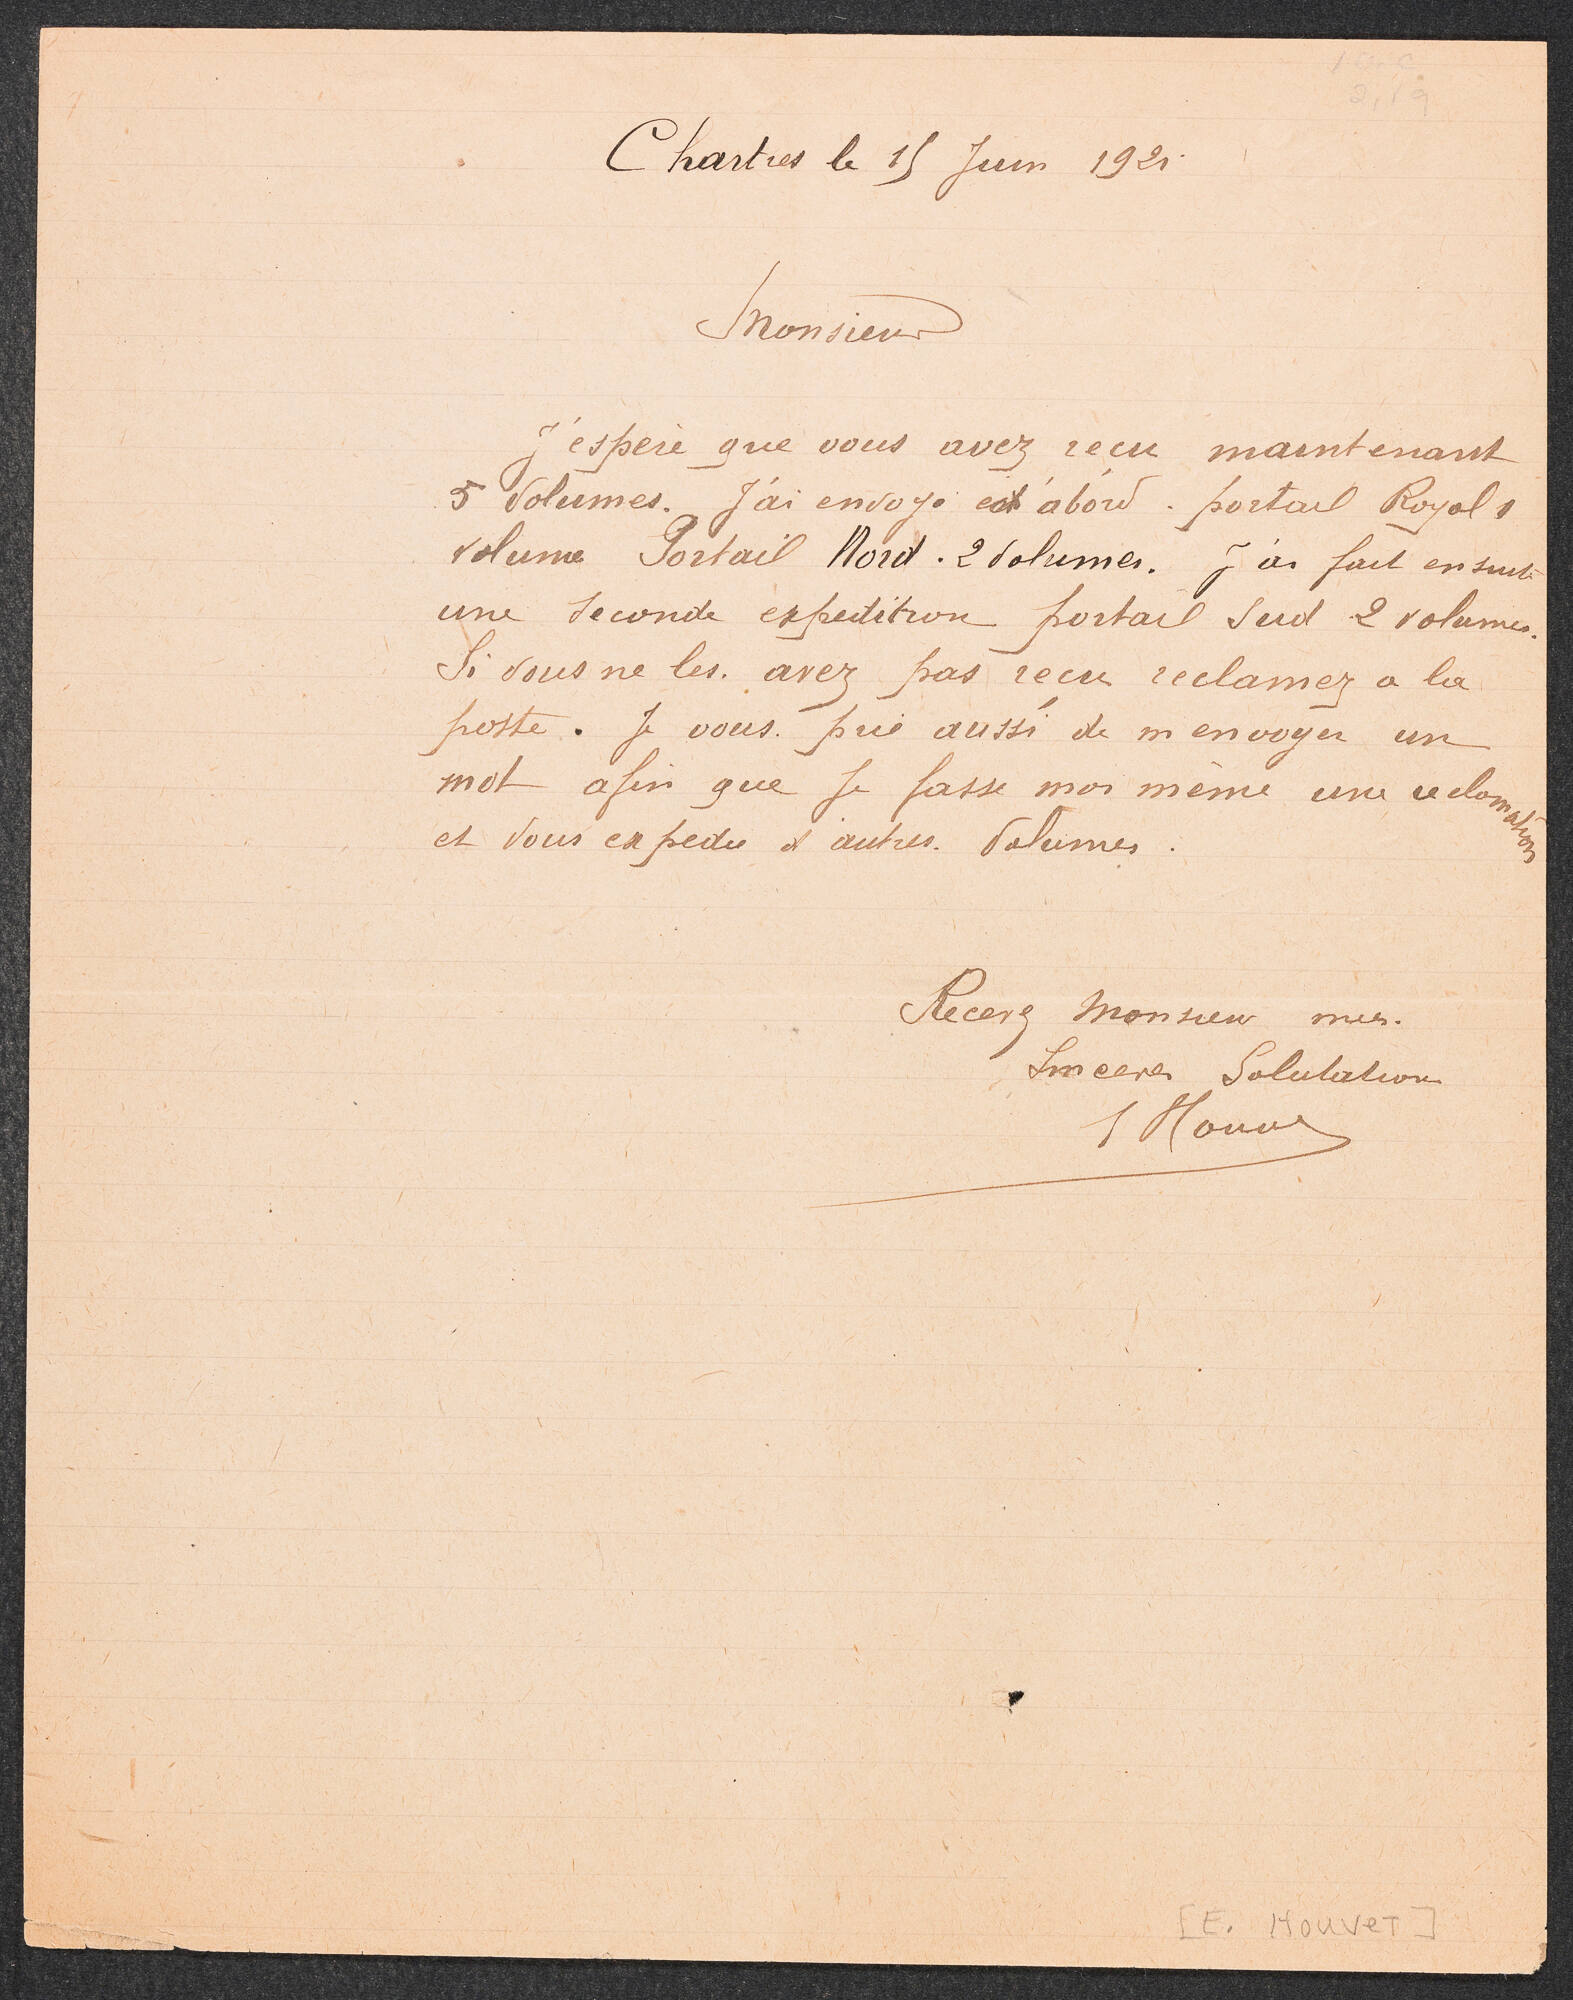 Chartres le 15 Juin 1921
Monsieur
J'espère que vous avez reçu maintenant
5 Volumes. J'ai envoyé d'abord. portail Royal 1
volume Portail Nord. 2 Volumes. J'ai fait ensuite
une seconde expedition portail Sud 2 volumes.
Si vous ne les. avez pas reçu reclamez a la
poste. Je vous. prie aussi de m envoyer un
mot afin que Je fasse moi même une reclamation
et vous expedie d'autres. Volumes.
Recevez Monsieur mes.
Sinceres Salutation
E Houvet
[E. HOUVET]